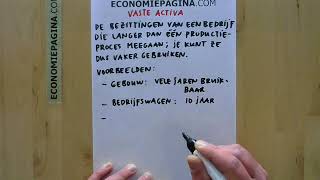 ECONOMIEPAGINA.COM
VASTE ACTIVA
DE BEZITTINGEN VAN EEN BEDRIJF
DIE LANGER DAN ÉÉN PRODUCTIE-
PROCES MEEGAAN; JE KUNT ZE
DUS VAKER GEBRUIKEN.
VOORBEELDEN:
- GEBOUW: VELE JAREN BRUIK-
BAAR
- BEDRIJFSWAGEN: 10 JAAR
-
ECONOMIEPAGINA.COM
ECONOMIEPAGINA.COM